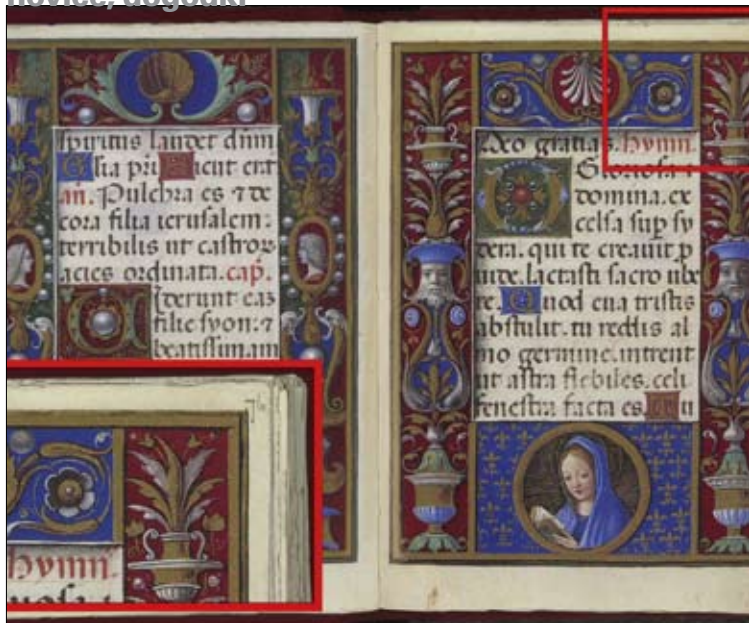 novice, dogodki
spiritus laudet dnm
Glia pri Sicut erat
an. Pulchra es ⁊ de
cora filia ierusalem:
terribilis ut castroꝝ
acies ordinata. cap̄.
Viderunt eaz
filie syon: ⁊
beatissimam
Deo gratias. hymni.
O Gloriosa
domina. ex
celsa sup sy
dera. qui te creauit p
uide. lactasti sacro ube
re. Quod eua tristis
abstulit. tu reddis al
mo germine. intrent
ut astra flebiles. celi
fenestra facta es. Tu
hymni.